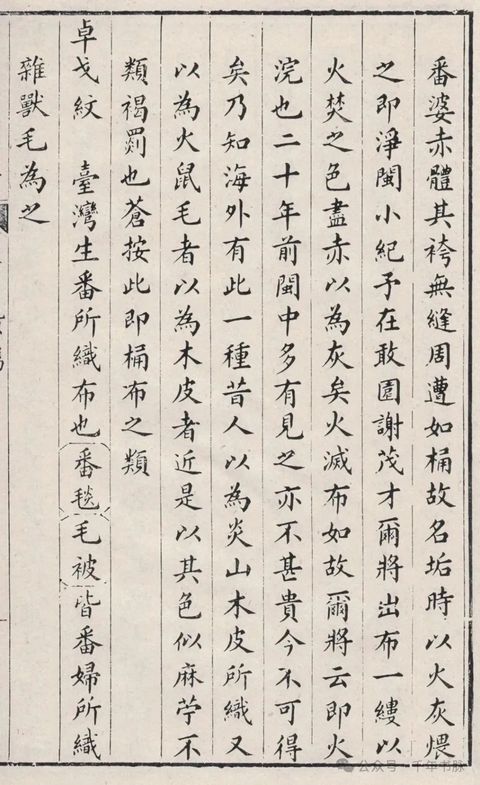 番婆赤體其袴無縫周遭如桶故名垢時以火灰煨
之即淨閩小紀予在敢園謝茂才爾將出布一縷以
火焚之色盡赤以為灰矣火滅布如故爾將云即火
浣也二十年前閩中多有見之亦不甚貴今不可得
矣乃知海外有此一種昔人以為炎山木皮所織又
以為火鼠毛者以為木皮者近是以其色似麻苧不
類褐罽也蒼按此即桶布之類
卓戈紋　臺灣生番所織布也番毯毛被皆番婦所織
雜獸毛為之
公众号·千年书脉